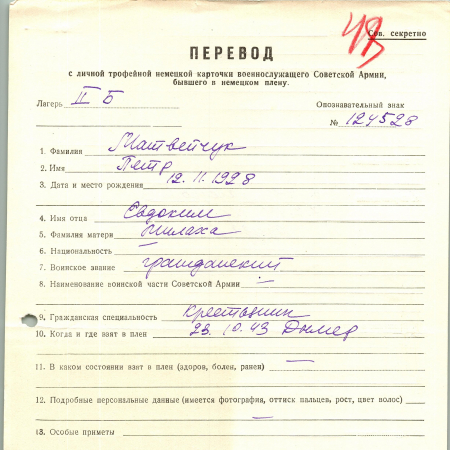 Сов. секретно
ПЕРЕВОД
с личной трофейной немецкой карточки военнослужащего Советской Армии,
бывшего в немецком плену.
Лагерь II Б
Опознавательный знак
№ 124528
1. Фамилия Матвейчук
2. Имя Петр
3. Дата и место рождения 12.11.1928
4. Имя отца Евдоким
5. Фамилия матери
6. Национальность —
7. Воинское звание гражданский
8. Наименование воинской части Советской Армии —
9. Гражданская специальность крестьянин
10. Когда и где взят в плен 23.10.43
11. В каком состоянии взят в плен (здоров, болен, ранен) —
12. Подробные персональные данные (имеется фотография, оттиск пальцев, рост, цвет волос)
—
13. Особые приметы